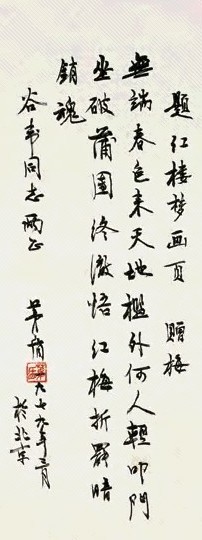 题红楼梦画页 赠梅
無端春色来天地檻外何人輕叩門
坐破蒲團终澈悟红梅折罷暗
銷魂
谷韦同志兩正
茅盾一九七九年三月
於北京